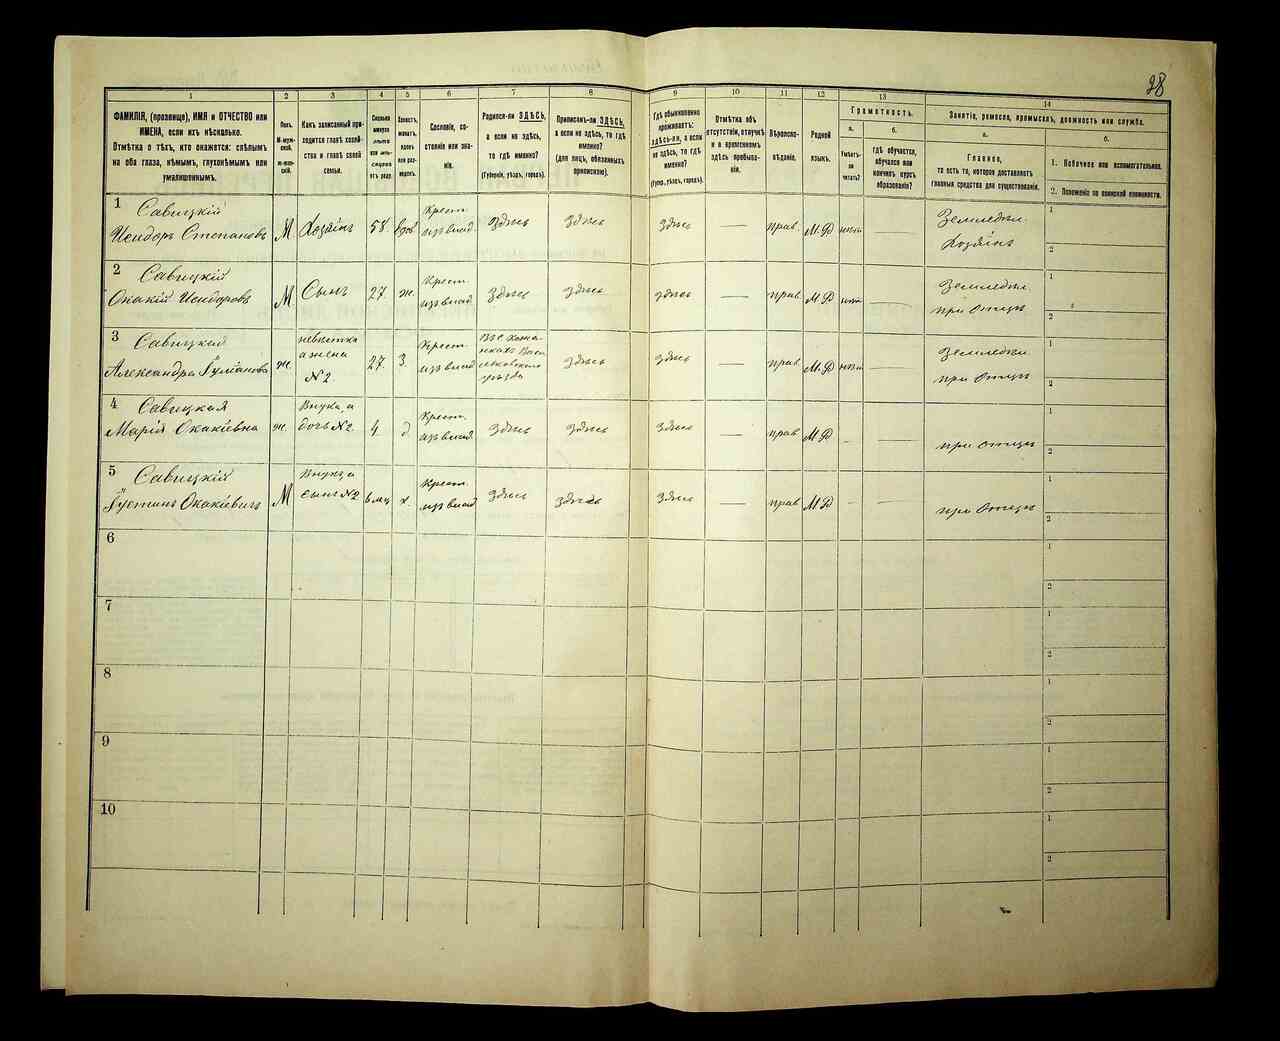 98
1
2
3
4
5
6
7
8
9
10
11
12
13
14
ФАМИЛІЯ, (прозвище), ИМЯ и ОТЧЕСТВО или
ИМЕНА, если ихъ нѣсколько.
Отмѣтка о тѣхъ, кто окажется: слѣпымъ
на оба глаза, нѣмымъ, глухонѣмымъ или
умалишеннымъ.
Полъ.
М-муж-
ской.
ж-жен-
скій.
Какъ записанный при-
ходится главѣ хозяй-
ства и главѣ своей
семьи.
Сколько
минуло
лѣтъ
или мѣ-
сяцевъ
отъ роду.
Холостъ,
женатъ,
вдовъ
или раз-
веденъ.
Сословіе, со-
стояніе или зва-
ніе.
Родился-ли ЗДѢСЬ,
а если не здѣсь,
то гдѣ именно?
(Губернія, уѣздъ, городъ).
Приписанъ-ли ЗДѢСЬ,
а если не здѣсь, то гдѣ
именно?
(для лицъ, обязанныхъ
припискою).
Гдѣ обыкновенно
проживаетъ:
здѣсь-ли, а если
не здѣсь, то гдѣ
именно?
(Губ., уѣздъ, городъ).
Отмѣтка объ
отсутствіи, отлучкѣ
и о временномъ
здѣсь пребыва-
ніи.
Вѣроиспо-
вѣданіе.
Родной
языкъ.
Грамотность.
а.
б.
Умѣетъ-
ли
читать?
гдѣ обучается,
обучался или
кончилъ курсъ
образованія?
Занятіе, ремесло, промыселъ, должность или служба.
а.
б.
Главное,
то есть то, которое доставляетъ
главныя средства для существованія.
1. Побочное или вспомогательное.
2. Положеніе по воинской повинности.
1
Савицкій
Исидоръ Степановъ
М
Хозяинъ
58.
вдов.
Крест.
изъ влад.
здѣсь
здѣсь
здѣсь
—
прав.
М.Р
нѣтъ
—
Земледѣл.
Хозяинъ
1
2
2
Савицкій
Окакій Исидоровъ
М
Сынъ
27.
ж.
Крест.
изъ влад.
здѣсь
здѣсь
здѣсь
—
прав.
М.Р
нѣт
—
Земледѣл.
при Отцѣ
1
2
3
Савицкая
Александра Іуліанова
ж.
невѣстка
а жена
№ 2.
27.
З.
Крест.
изъ влад
Въ с.
уѣзда
здѣсь
здѣсь
—
прав.
М.Р
нѣтъ
—
Земледѣл.
при Отцѣ
1
2
4
Савицкая
Марія Окакіевна
ж.
Внука, а
дочь №2.
4
д.
Крест.
изъ влад.
здѣсь
здѣсь
здѣсь
—
прав.
М.Р
-
—
при Отцѣ
1
2
5
Савицкій
Іустинъ Окакіевичъ
М
Внукъ, а
сынъ №2
6 мц
х.
Крест.
изъ влад
здѣсь
здѣсь
здѣсь
—
прав.
М.Р
-
—
при Отцѣ
1
2
6
1
2
7
1
2
8
1
2
9
1
2
10
1
2